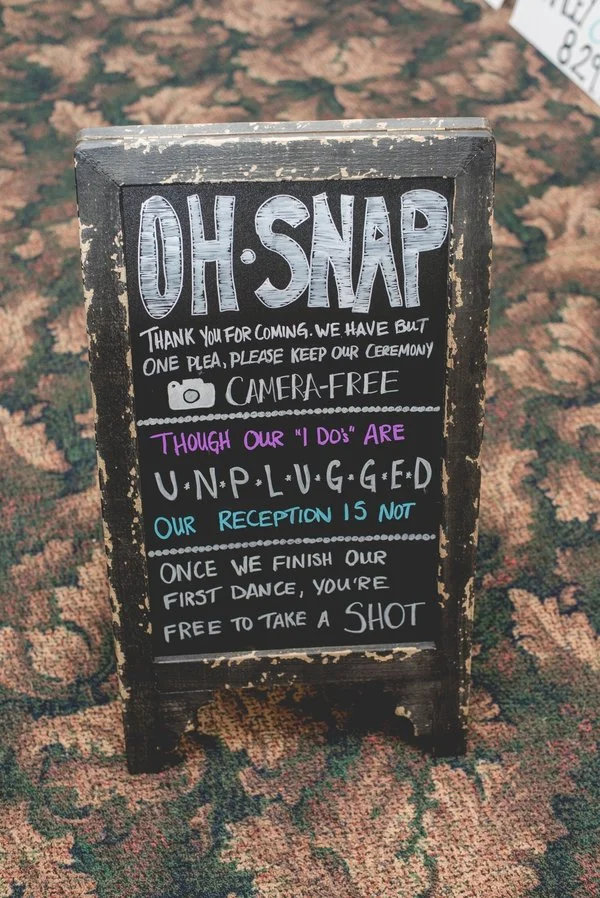 OH·SNAP
THANK YOU FOR COMING. WE HAVE BUT
ONE PLEA, PLEASE KEEP OUR CEREMONY
CAMERA-FREE
THOUGH OUR "I DO's" ARE
U*N*P*L*U*G*G*E*D
OUR RECEPTION IS NOT
ONCE WE FINISH OUR
FIRST DANCE, YOU'RE
FREE TO TAKE A SHOT
8.29